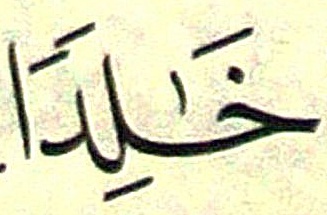 خَٰلِدَا